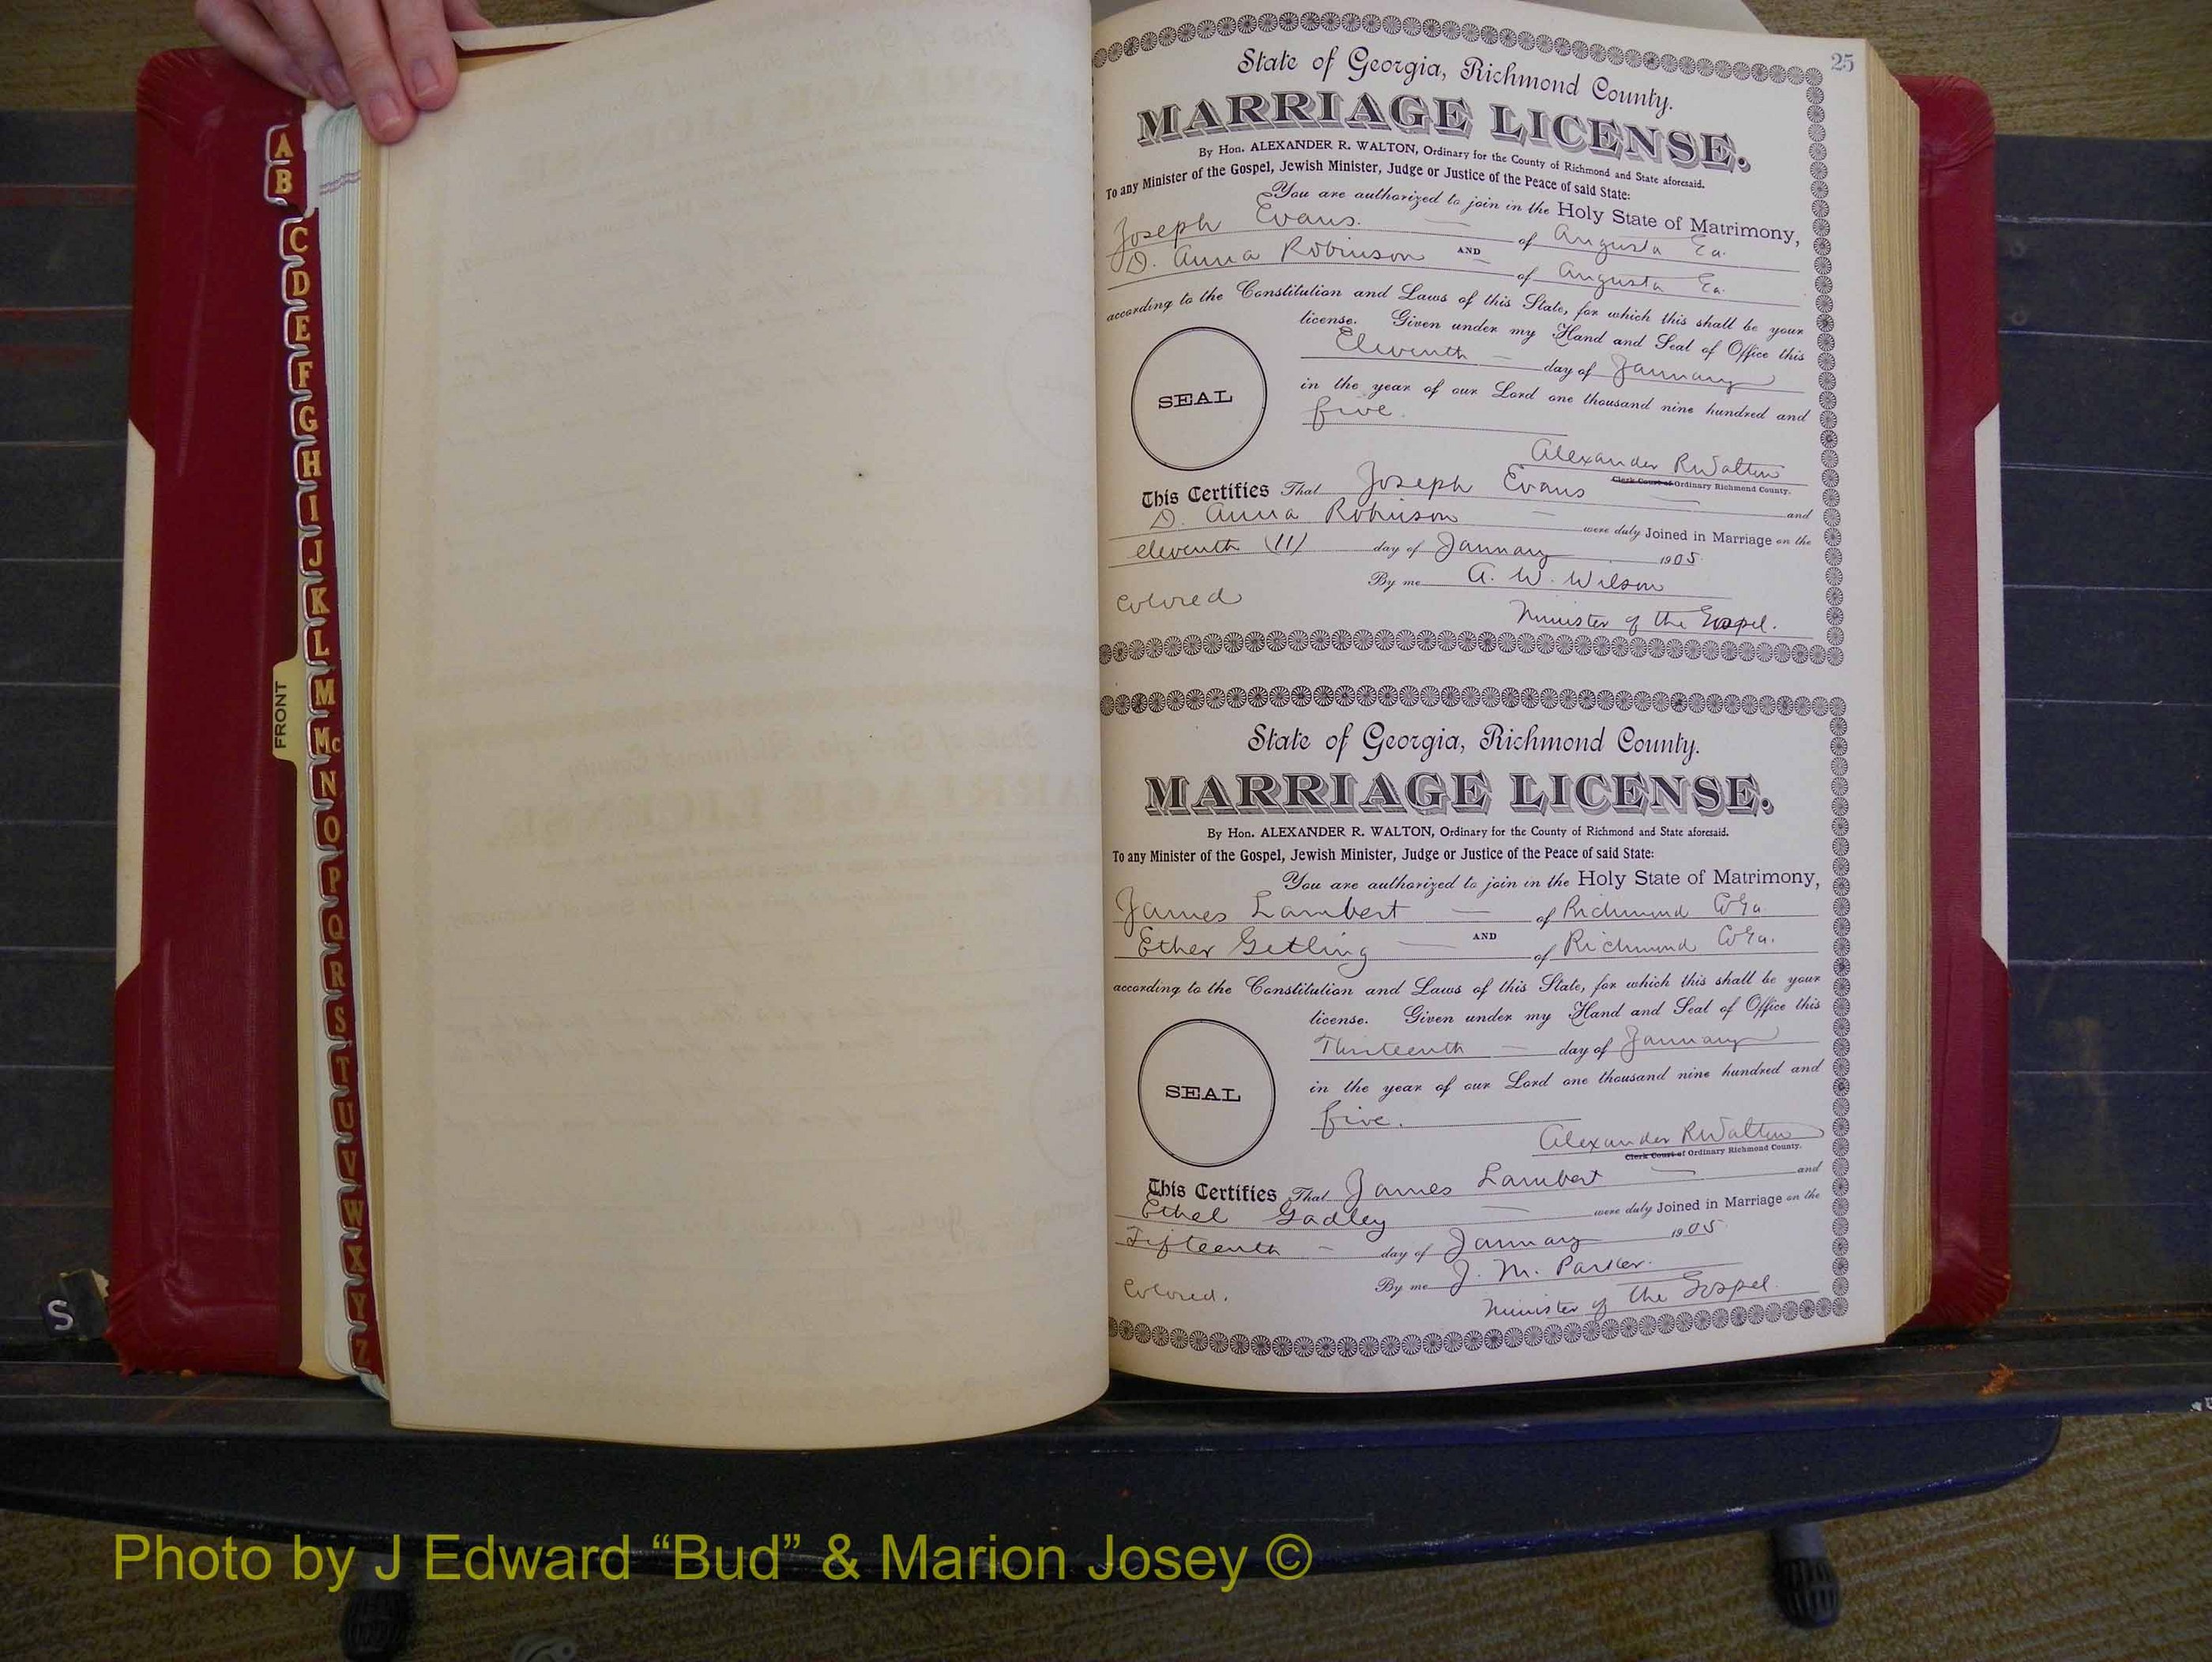 A
B
C
D
E
F
G
H
I
J
K
L
M
Mc
N
O
P
Q
R
S
T
U
V
W
X
Y
Z
FRONT
S
25
State of Georgia, Richmond County.
MARRIAGE LICENSE.
By Hon. ALEXANDER R. WALTON, Ordinary for the County of Richmond and State aforesaid.
To any Minister of the Gospel, Jewish Minister, Judge or Justice of the Peace of said State:
You are authorized to join in the Holy State of Matrimony,
Joseph Evans. of Augusta Ga.
AND
D. Anna Robinson of Augusta Ga.
according to the Constitution and Laws of this State, for which this shall be your
license. Given under my Hand and Seal of Office this
Eleventh day of January
in the year of our Lord one thousand nine hundred and
five.
SEAL
Alexander R Walton
Clerk Court of Ordinary Richmond County.
This Certifies That Joseph Evans and
D. Anna Robinson were duly Joined in Marriage on the
eleventh (11) day of January 1905.
By me A. W. Wilson
Colored Minister of the Gospel.
State of Georgia, Richmond County.
MARRIAGE LICENSE.
By Hon. ALEXANDER R. WALTON, Ordinary for the County of Richmond and State aforesaid.
To any Minister of the Gospel, Jewish Minister, Judge or Justice of the Peace of said State:
You are authorized to join in the Holy State of Matrimony,
James Lambert of Richmond Co Ga
AND
Ether Getling of Richmond Co Ga.
according to the Constitution and Laws of this State, for which this shall be your
license. Given under my Hand and Seal of Office this
Thirteenth day of January
in the year of our Lord one thousand nine hundred and
five.
SEAL
Alexander R Walton
Clerk Court of Ordinary Richmond County.
This Certifies That James Lambert and
Ethel Gadley were duly Joined in Marriage on the
Fifteenth day of January 1905
By me J. M. Parker.
Colored. Minister of the Gospel
Photo by J Edward “Bud” & Marion Josey ©